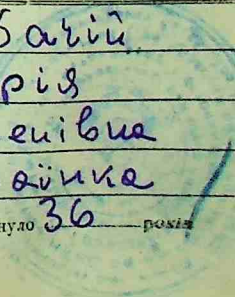 бачій
рія
енівна
аїнка
нуло 36 років